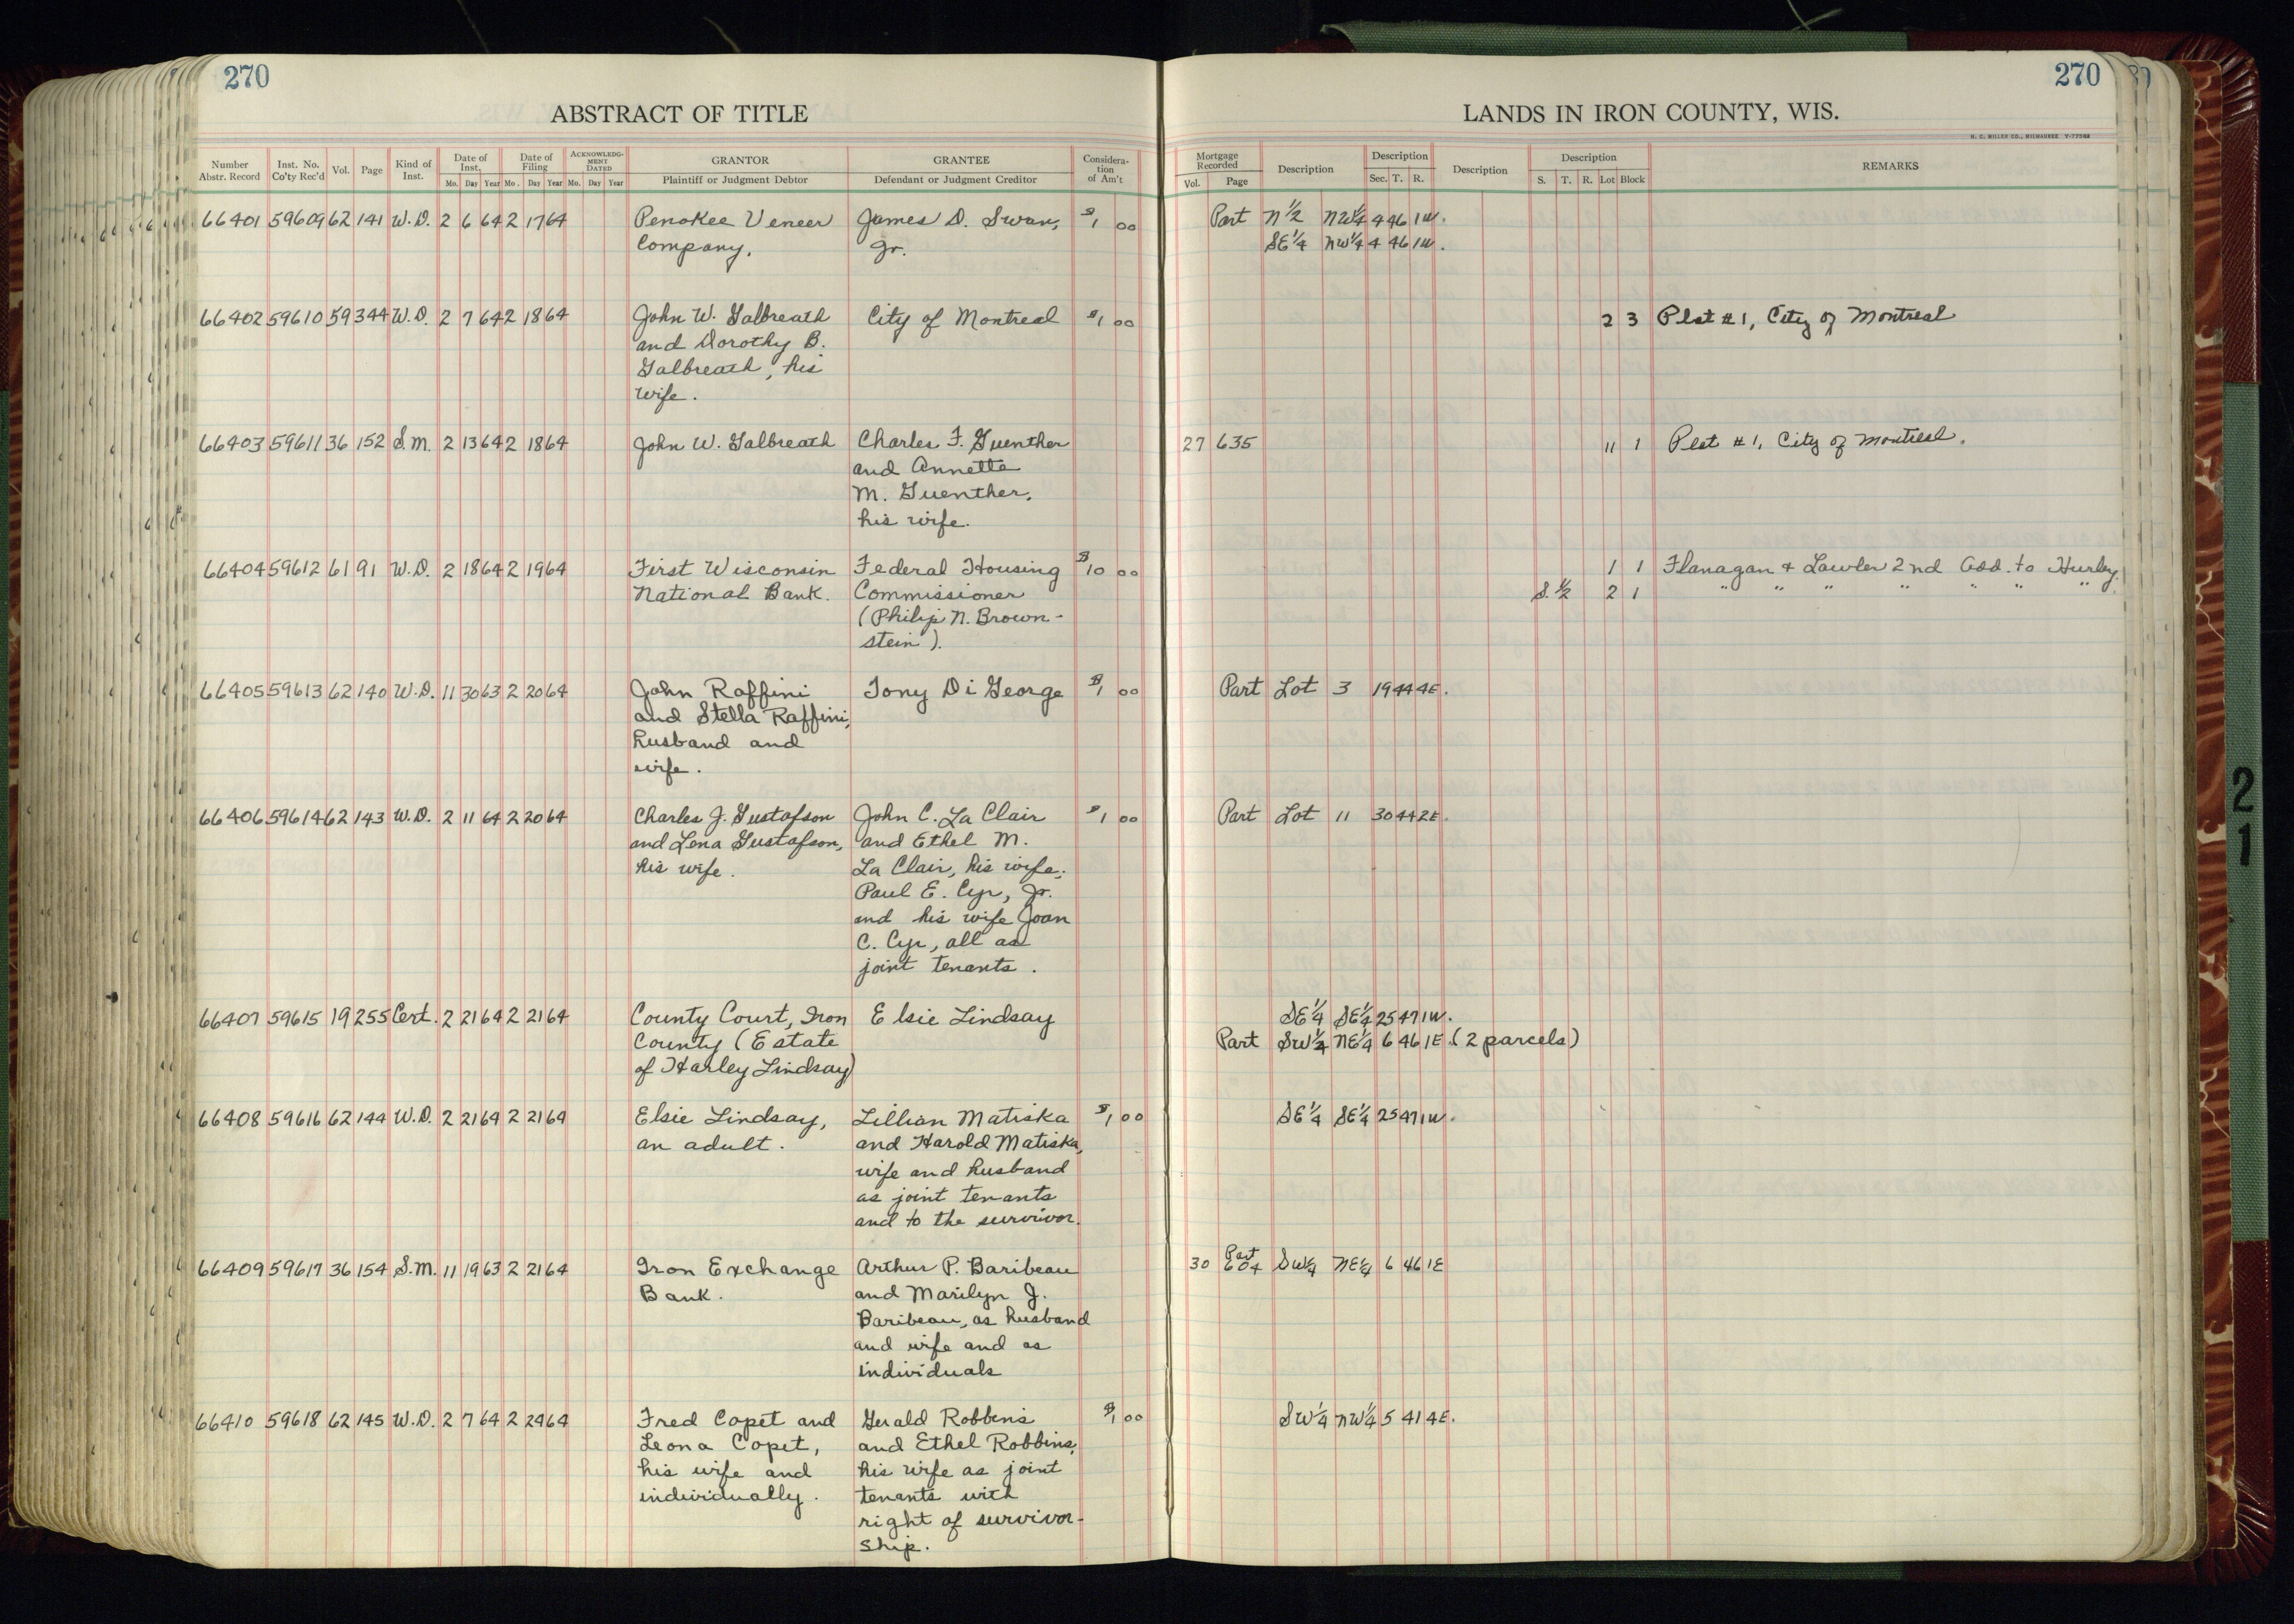 270
270
ABSTRACT OF TITLE
LANDS IN IRON COUNTY, WIS.
H. C. MILLER CO., MILWAUKEE V-77569
Number Abstr. Record | Inst. No. Co'ty Rec'd | Vol. | Page | Kind of Inst. | Date of Inst. Mo. Day Year | Date of Filing Mo. Day Year | ACKNOWLEDGMENT DATED Mo. Day Year | GRANTOR Plaintiff or Judgment Debtor | GRANTEE Defendant or Judgment Creditor | Consideration of Am't | Mortgage Recorded Vol. Page | Description | Description Sec. T. R. | Description | Description S. T. R. Lot Block | REMARKS
66401 59609 62 141 W.D. 2 6 64 2 17 64 Penokee Veneer James D. Swan, $1 00 Part N 1/2 NW 1/4 4 46 1W.
Company. Jr. SE 1/4 NW 1/4 4 46 1W.
66402 59610 59 344 W.D. 2 7 64 2 18 64 John W. Galbreath City of Montreal $1 00 2 3 Plat #1, City of Montreal
and Dorothy B.
Galbreath, his
wife.
66403 59611 36 152 S.M. 2 13 64 2 18 64 John W. Galbreath Charles F. Guenther 27 635 11 1 Plat #1, City of Montreal.
and Annette
M. Guenther,
his wife.
66404 59612 61 91 W.D. 2 18 64 2 19 64 First Wisconsin Federal Housing $10 00 1 1 Flanagan + Lawler 2nd Add. to Hurley.
National Bank. Commissioner S. 1/2 2 1 " " " " " " "
(Philip N. Brown-
stein).
66405 59613 62 140 W.D. 11 30 63 2 20 64 John Raffini Tony Di George $1 00 Part Lot 3 19 44 4E.
and Stella Raffini,
husband and
wife.
66406 59614 62 143 W.D. 2 11 64 2 20 64 Charles J. Gustafson John C. La Clair $1 00 Part Lot 11 30 44 2E.
and Lena Gustafson, and Ethel M.
his wife. La Clair, his wife;
Paul E. Cyr, Jr.
and his wife Joan
C. Cyr, all as
joint tenants.
66407 59615 19 255 Cert. 2 21 64 2 21 64 County Court, Iron Elsie Lindsay SE 1/4 SE 1/4 25 47 1W.
County (Estate Part SW 1/4 NE 1/4 6 46 1E. (2 parcels)
of Harley Lindsay)
66408 59616 62 144 W.D. 2 21 64 2 21 64 Elsie Lindsay, Lillian Matiska $1 00 SE 1/4 SE 1/4 25 47 1W.
an adult. and Harold Matiska,
wife and husband
as joint tenants
and to the survivor.
66409 59617 36 154 S.M. 11 19 63 2 21 64 Iron Exchange Arthur P. Baribeau 30 604 Part SW 1/4 NE 1/4 6 46 1E
Bank. and Marilyn J.
Baribeau, as husband
and wife and as
individuals
66410 59618 62 145 W.D. 2 7 64 2 24 64 Fred Copet and Gerald Robbins $1 00 SW 1/4 NW 1/4 5 41 4E.
Leona Copet, and Ethel Robbins,
his wife and his wife as joint
individually. tenants with
right of survivor-
ship.
21